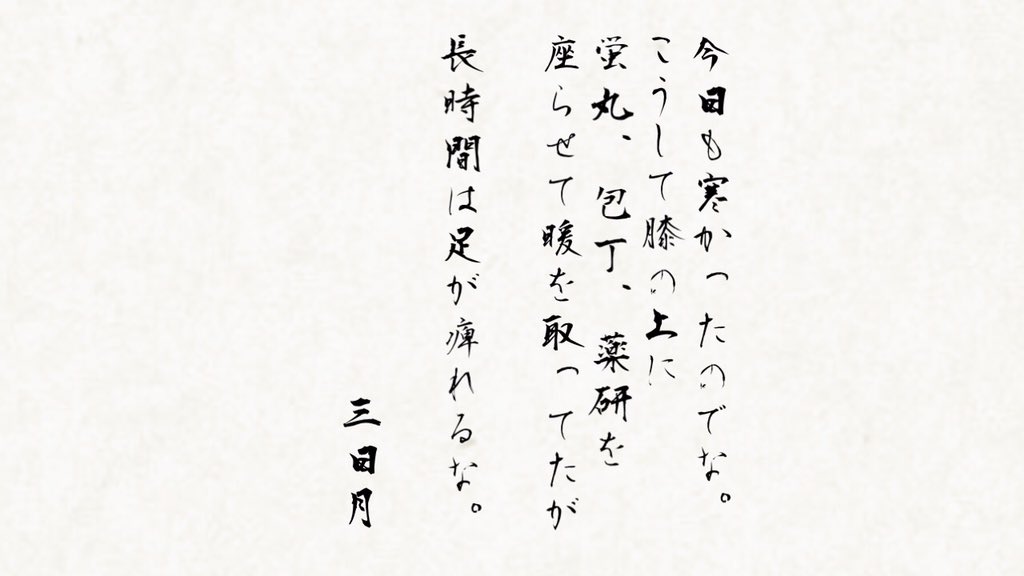 今日も寒かったのでな。
こうして膝の上に
蛍丸、包丁、薬研を
座らせて暖を取ってたが
長時間は足が痺れるな。
三日月